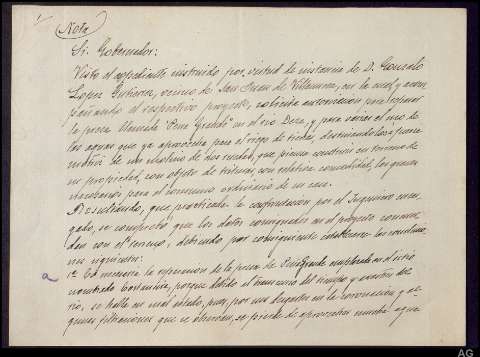 Nota
Sr. Gobernador:
Visto el expediente instruido por virtud de instancia de D. Gonzalo
Lopez Gutierrez, vecino de San Juan de Villanueva, en la cual y acom
pañando el respectivo proyecto, solicita autorizacion para reparar
la presa llamada "Pena Grande" en el rio Deza, y para variar el uso de
las aguas que ya aprovecha para el riego de tierras, destinándolas á fuerza
motriz de un molino de dos ruedas, que piensa construir en terreno de
su propiedad, con objeto de triturar, con relativa comodidad, los granos
necesarios para el consumo ordinario de su casa.
Resultando, que practicada la confrontacion por el Ingeniero encar
gado, se comprobó que los datos consignados en el proyecto concuer
dan con el terreno, debiendo por consiguiente establecerse las conclusio
nes siguientes:
1ª Es necesaria la reparacion de la presa de Pena Grande en el sitio
nombrado porque debido al transcurso del tiempo y accion del
rio, se halla en mal estado, pues, por sus desgastes en la coronación y al
gunas filtraciones que se observan, se pierde de aprovechar mucha agua
a
AG